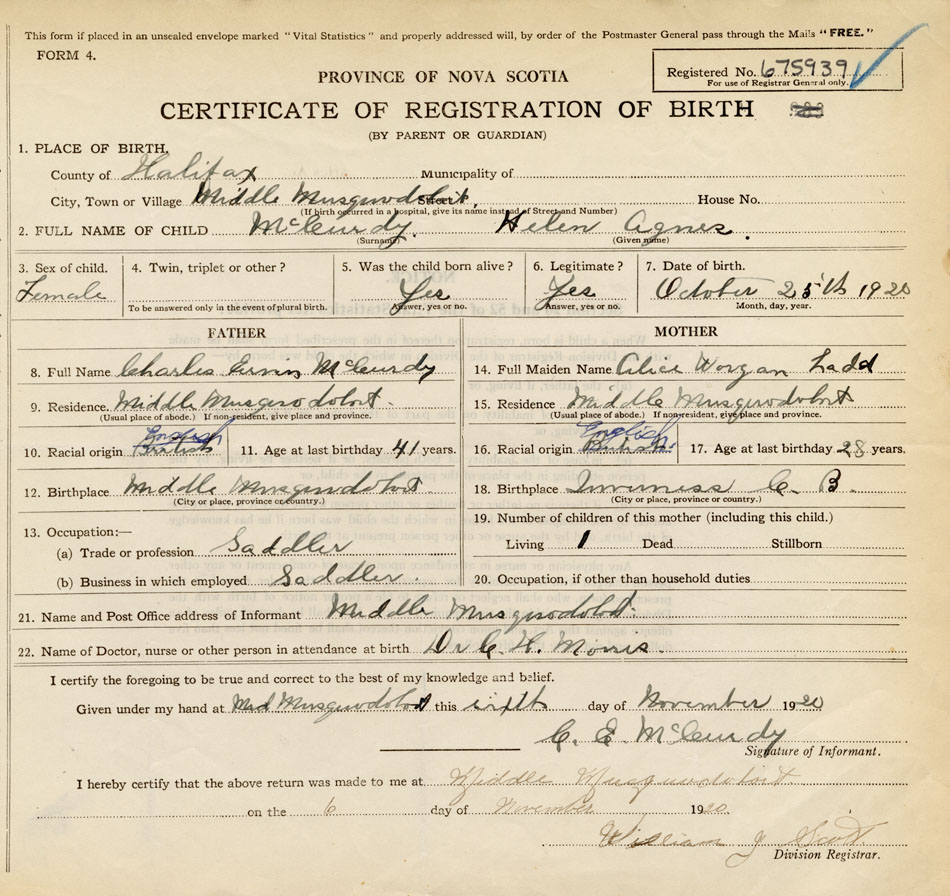 This form if placed in an unsealed envelope marked "Vital Statistics" and properly addressed will, by order of the Postmaster General pass through the Mails "FREE."
FORM 4.
Registered No. 675939
For use of Registrar General only.
PROVINCE OF NOVA SCOTIA
CERTIFICATE OF REGISTRATION OF BIRTH
(BY PARENT OR GUARDIAN)
1. PLACE OF BIRTH,
County of Halifax Municipality of
City, Town or Village Middle Musquodoboit. Street House No.
(If birth occurred in a hospital, give its name instead of Street and Number)
2. FULL NAME OF CHILD McCurdy. Helen Agnes.
(Surname) (Given name)
3. Sex of child. 4. Twin, triplet or other? 5. Was the child born alive? 6. Legitimate? 7. Date of birth.
Female Yes Yes October 25th 1920
To be answered only in the event of plural birth. Answer, yes or no. Answer, yes or no. Month, day, year.
FATHER
8. Full Name Charles Ervin McCurdy
9. Residence. Middle Musquodoboit.
(Usual place of abode.) If non-resident, give place and province.
English
10. Racial origin British 11. Age at last birthday 41 years.
12. Birthplace Middle Musquodoboit.
(City or place, province or country.)
13. Occupation:—
(a) Trade or profession Saddler
(b) Business in which employed Saddler.
MOTHER
14. Full Maiden Name Alice Worgan Ladd
15. Residence Middle Musquodoboit
(Usual place of abode.) If non-resident, give place and province.
English
16. Racial origin British. 17. Age at last birthday 28 years.
18. Birthplace Inverness C. B.
(City or place, province or country.)
19. Number of children of this mother (including this child.)
Living 1 Dead Stillborn
20. Occupation, if other than household duties
21. Name and Post Office address of Informant Middle Musquodoboit.
22. Name of Doctor, nurse or other person in attendance at birth Dr C. H. Morris.
I certify the foregoing to be true and correct to the best of my knowledge and belief.
Given under my hand at Mid Musquodoboit this sixth day of November 1920
C. E. McCurdy
Signature of Informant.
I hereby certify that the above return was made to me at Middle Musquodoboit
on the 6 day of November 1920.
William J Scott
Division Registrar.